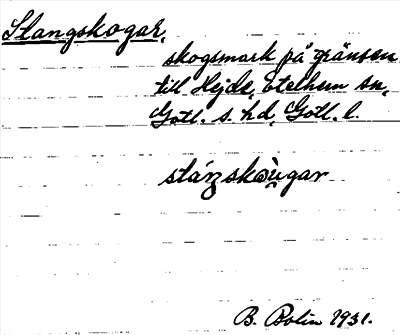 Stangskogar,
skogsmark på gränsen
till Hejde, Etelhem sn,
Gotl. s. hd, Gotl. l.
stáŋskòu̯gar
B. Bolin 1931.